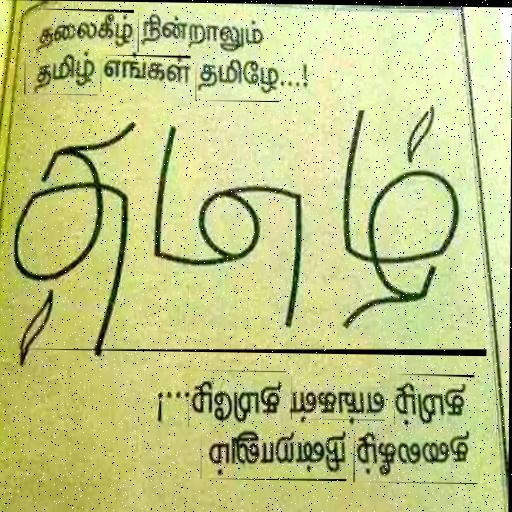 தலைகீழ் நின்றாலும்
தமிழ் எங்கள் தமிழே...!
தமிழ்
தமிழ் எங்கள் தமிழே...!
தலைகீழ் நின்றாலும்